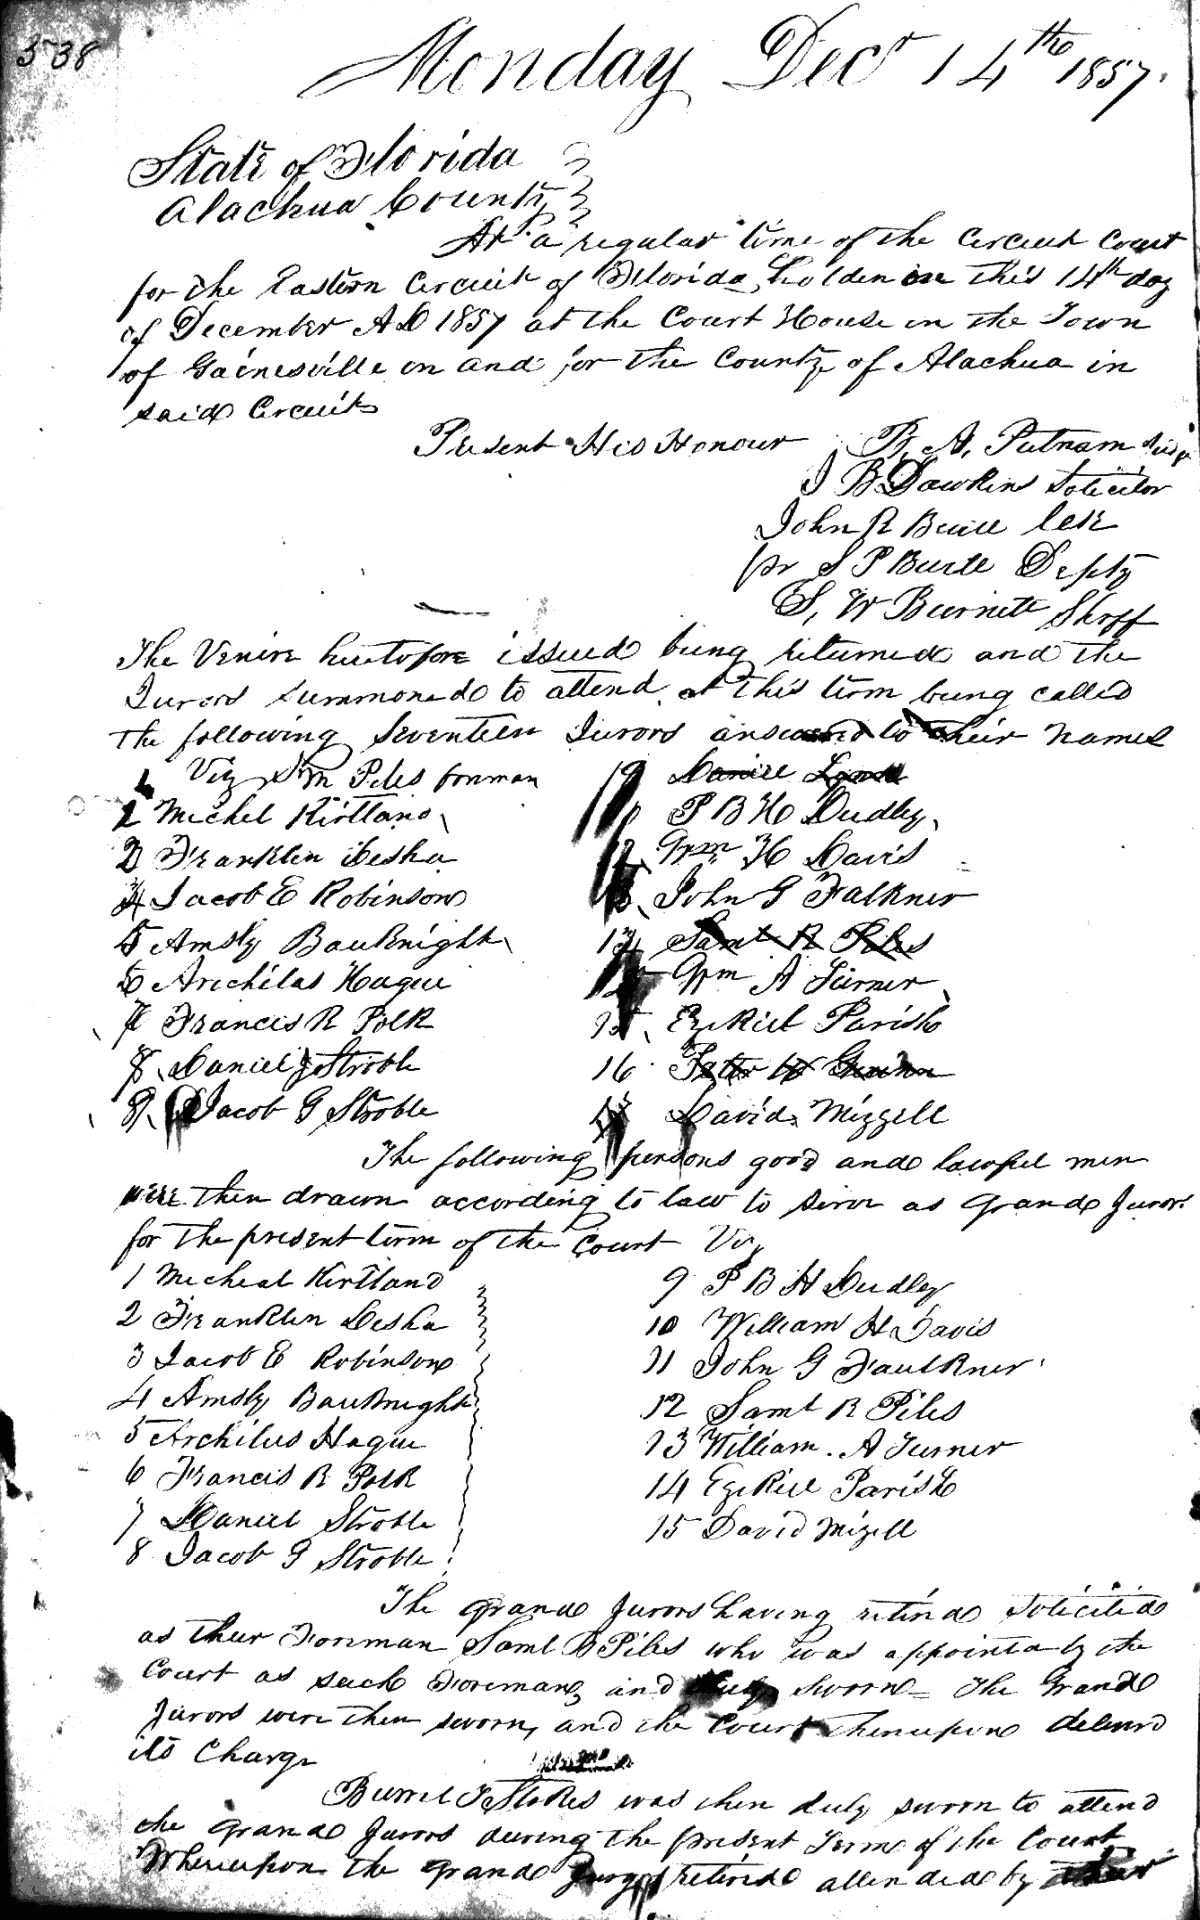 538
Monday Decr 14th 1857.
State of Florida
Alachua County
At a regular time of the Circuit Court
for the Eastern Circuit of Florida, holden on this 14th day
of December AD 1857 at the Court House in the Town
of Gainesville in and for the County of Alachua in
said Circuit
Present His Honour B. A. Putnam Judge
J B Dawkins Solicitor
John R Buill Celk
pr S P Burle Depty
S, W Burnett Shrff
The Venire heretofore issued being returned and the
Jurors summoned to attend at this term being called
the following Seventeen Jurors answered to their names
Viz Sm Piles forman
2 Michel Kirtland
3 Franklin Desha
4 Jacob E Robinson
5 Amsly Bauknight
6 Archilas Hague
7 Francis R Polk
8 Daniel J Stroble
9 Jacob G Stroble
19 Daniel Lynn
P B H Dudley
12 Wm H Davis
13 John G Falkner
13 Saml R Piles
Wm A Turner
15 Ezekiel Parish
16 Peter W Guinn
David Mizzell
The following persons good and lawful men
were then drawn according to law to serve as Grand Jurors
for the present term of the Court Viz
1 Micheal Kirtland
2 Franklin Desha
3 Jacob E Robinson
4 Amsly Bauknight
5 Archilus Hague
6 Francis R Polk
7 Daniel Stroble
8 Jacob G Stroble
9 P B H Dudley
10 William H Davis
11 John G Faulkner
12 Saml R Piles
13 William. A Turner
14 Ezekiel Parish
15 David Mizell
The grand Jurors having retired Solicited
as their Foreman Saml R Piles who was appointed by the
Court as such Foreman, and duly Sworn = The Grand
Jurors were then sworn, and the Court thereupon delivered
its Charge
Burrel T Stokes was then duly sworn to attend
the Grand Jurors during the present Term of the Court
Whereupon the Grand Jury retired attended by their